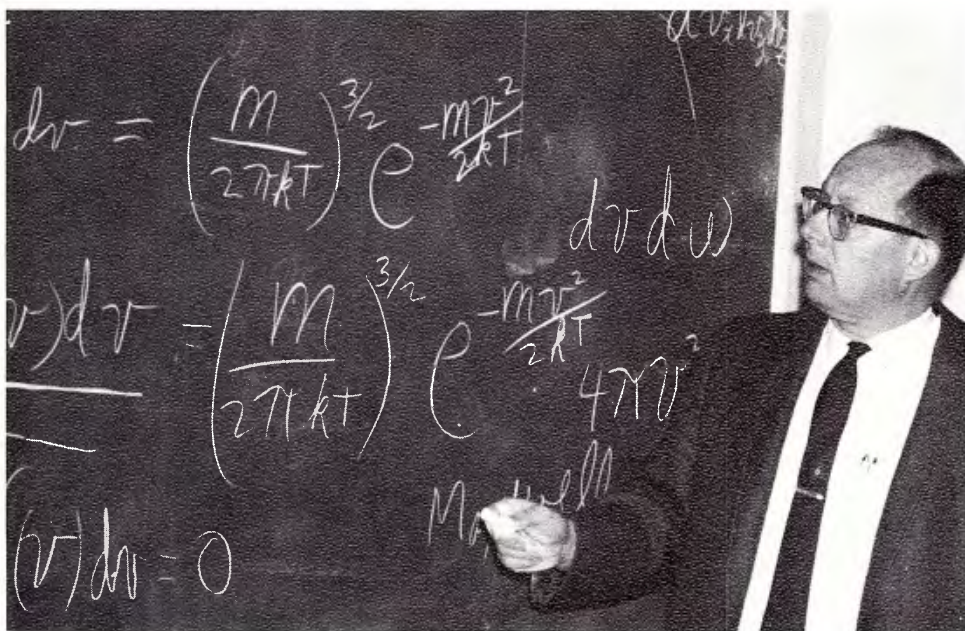 dv = (m/2πkT)^3/2 e^-mv²/2kT
dv dω
v)dv = (m/2πkT)^3/2 e^-mv²/2kT 4πv²
(v)dv = 0